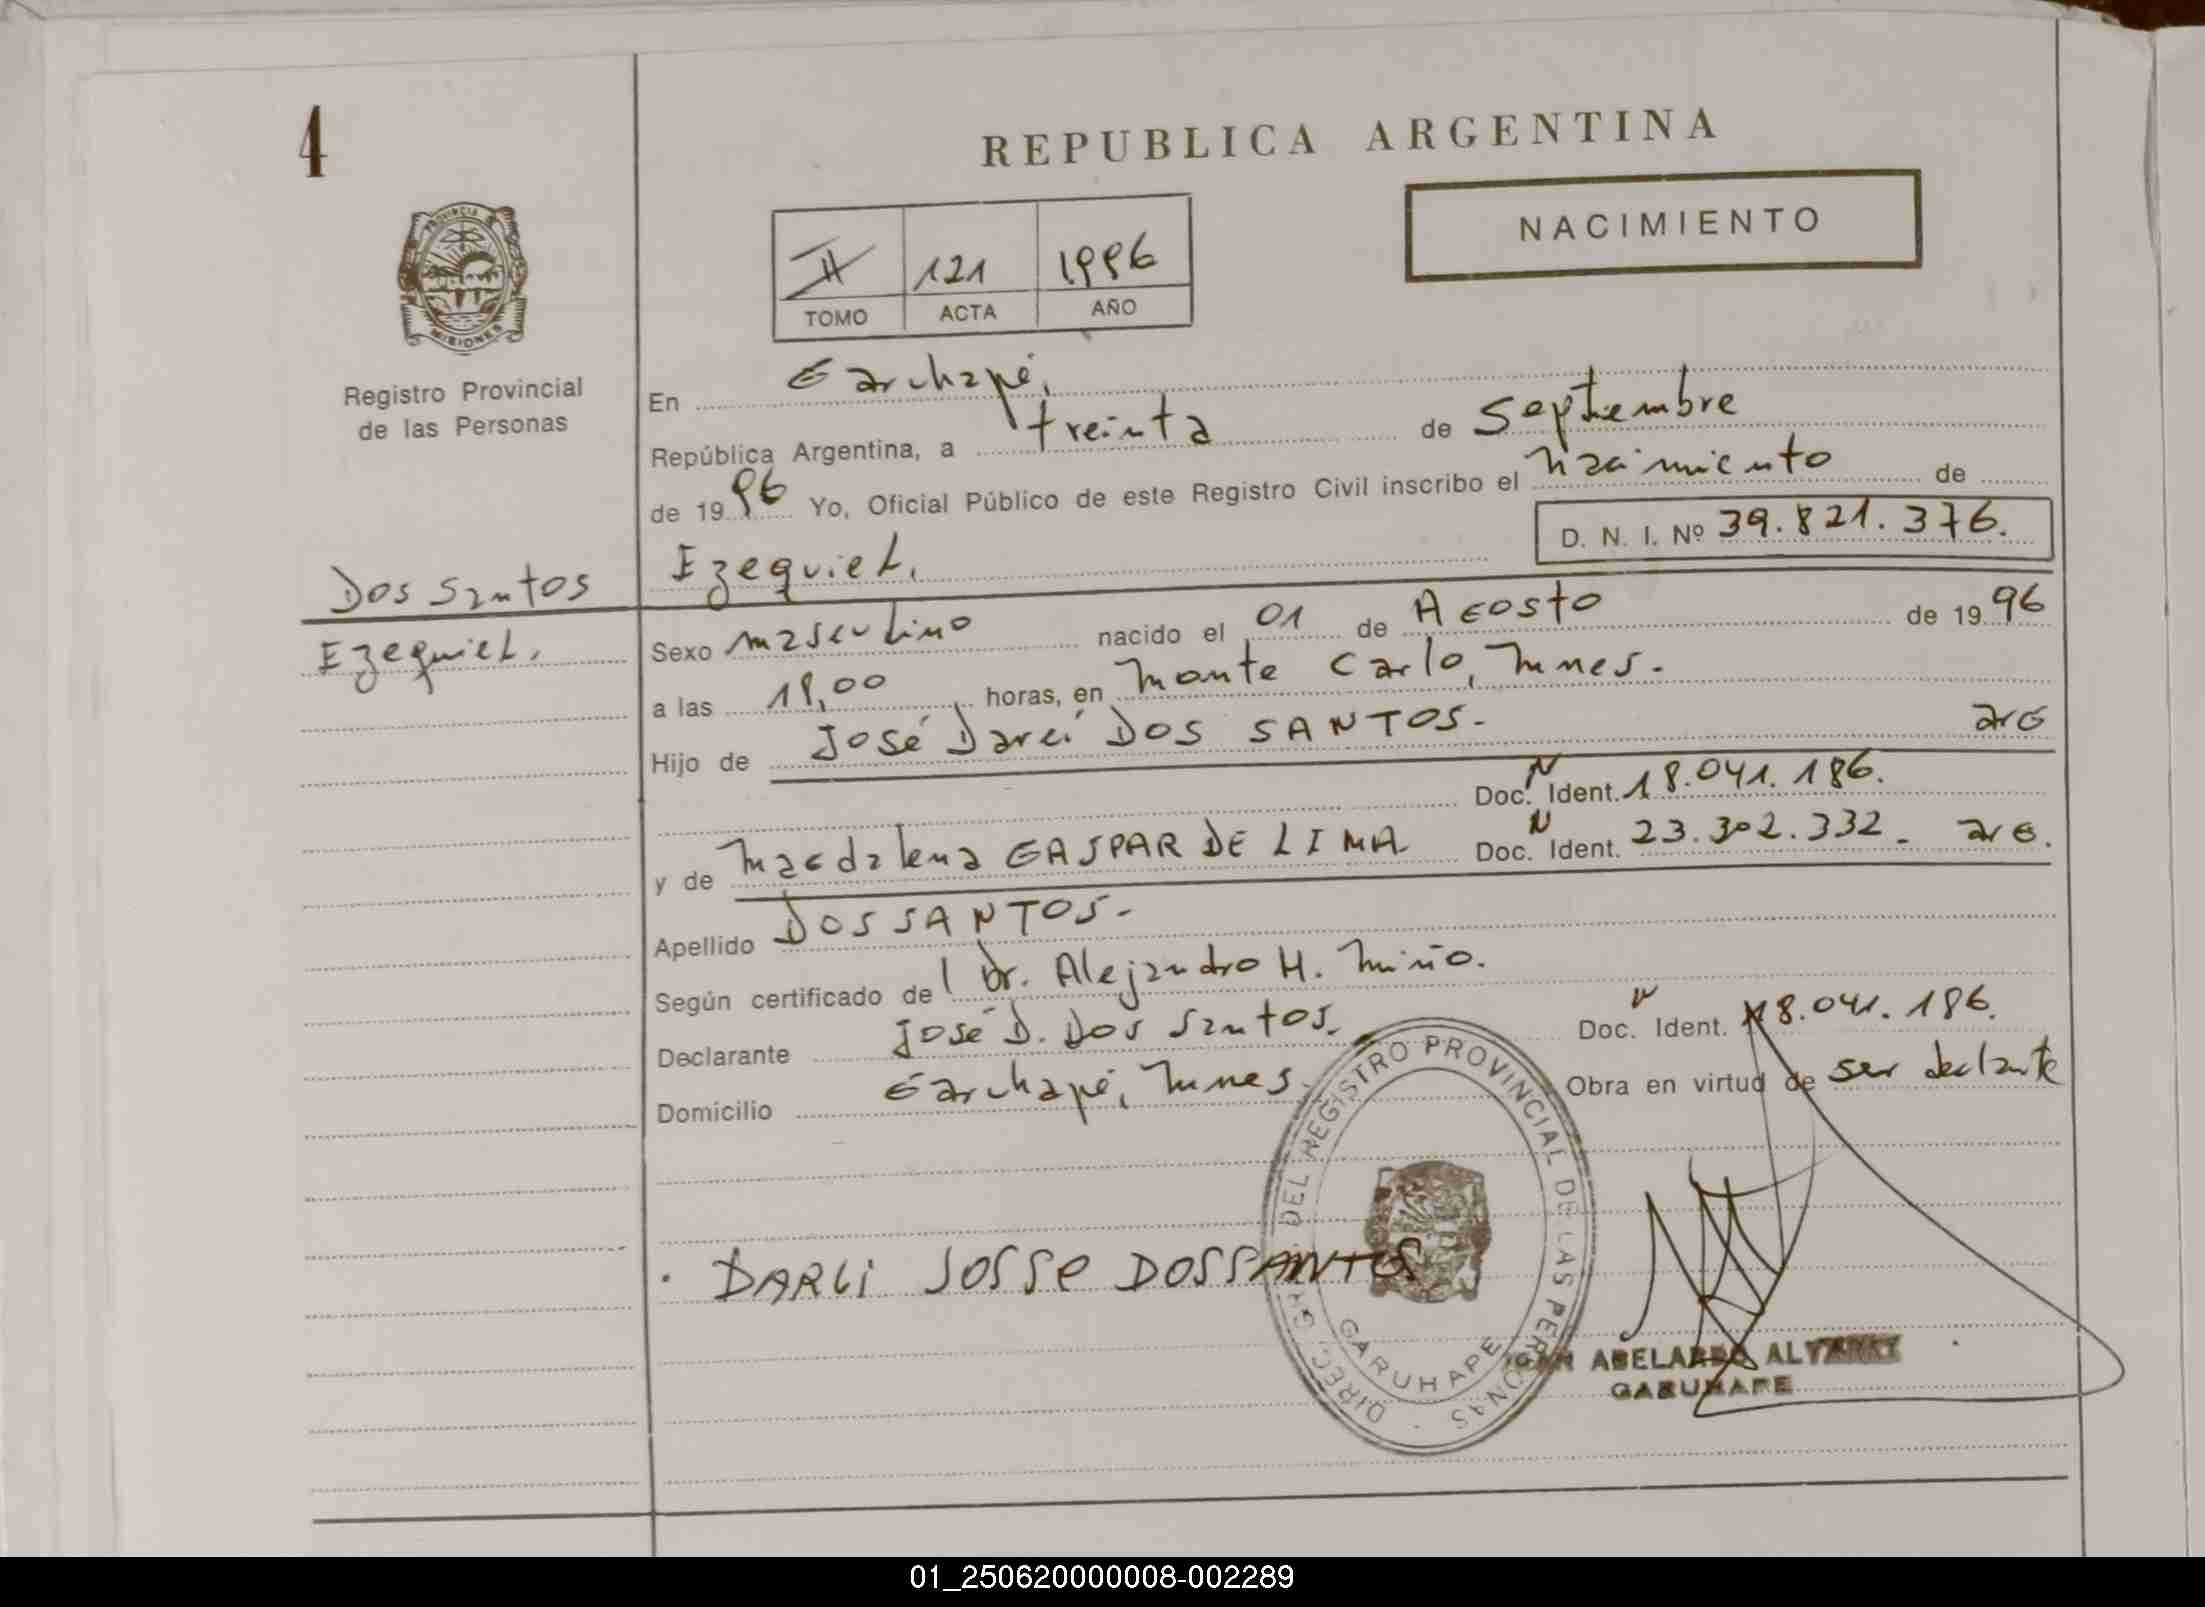 4
REPUBLICA ARGENTINA
NACIMIENTO
PROVINCIA DE
MISIONES
Registro Provincial
de las Personas
II 121 1996
TOMO ACTA AÑO
En Garuhapé,
República Argentina, a treinta de Septiembre
de 1996 Yo, Oficial Público de este Registro Civil inscribo el nacimiento de
D. N. I. Nº 39.821.376.
Dos Santos Ezequiel.
Ezequiel.
Sexo masculino nacido el 01 de Agosto de 1996
a las horas, en Monte Carlo, Mnes.
Hijo de José Darci DOS SANTOS. arg
Doc. N Ident. 18.041.186.
y de Magdalena GASPAR DE LIMA Doc. N Ident. 23.302.332. arg.
Apellido DOS SANTOS.
Según certificado del Dr. Alejandro H. Miño.
Declarante José D. Dos Santos. Doc. N Ident. 18.041.186.
Domicilio Garuhapé, Mnes. Obra en virtud de ser declante
DIREC. GRAL. DEL REGISTRO PROVINCIAL DE LAS PERSONAS
GARUHAPE
DARLI JOSSE DOSSANTOS
ABELARDO
GARUHAPE
01_250620000008-002289